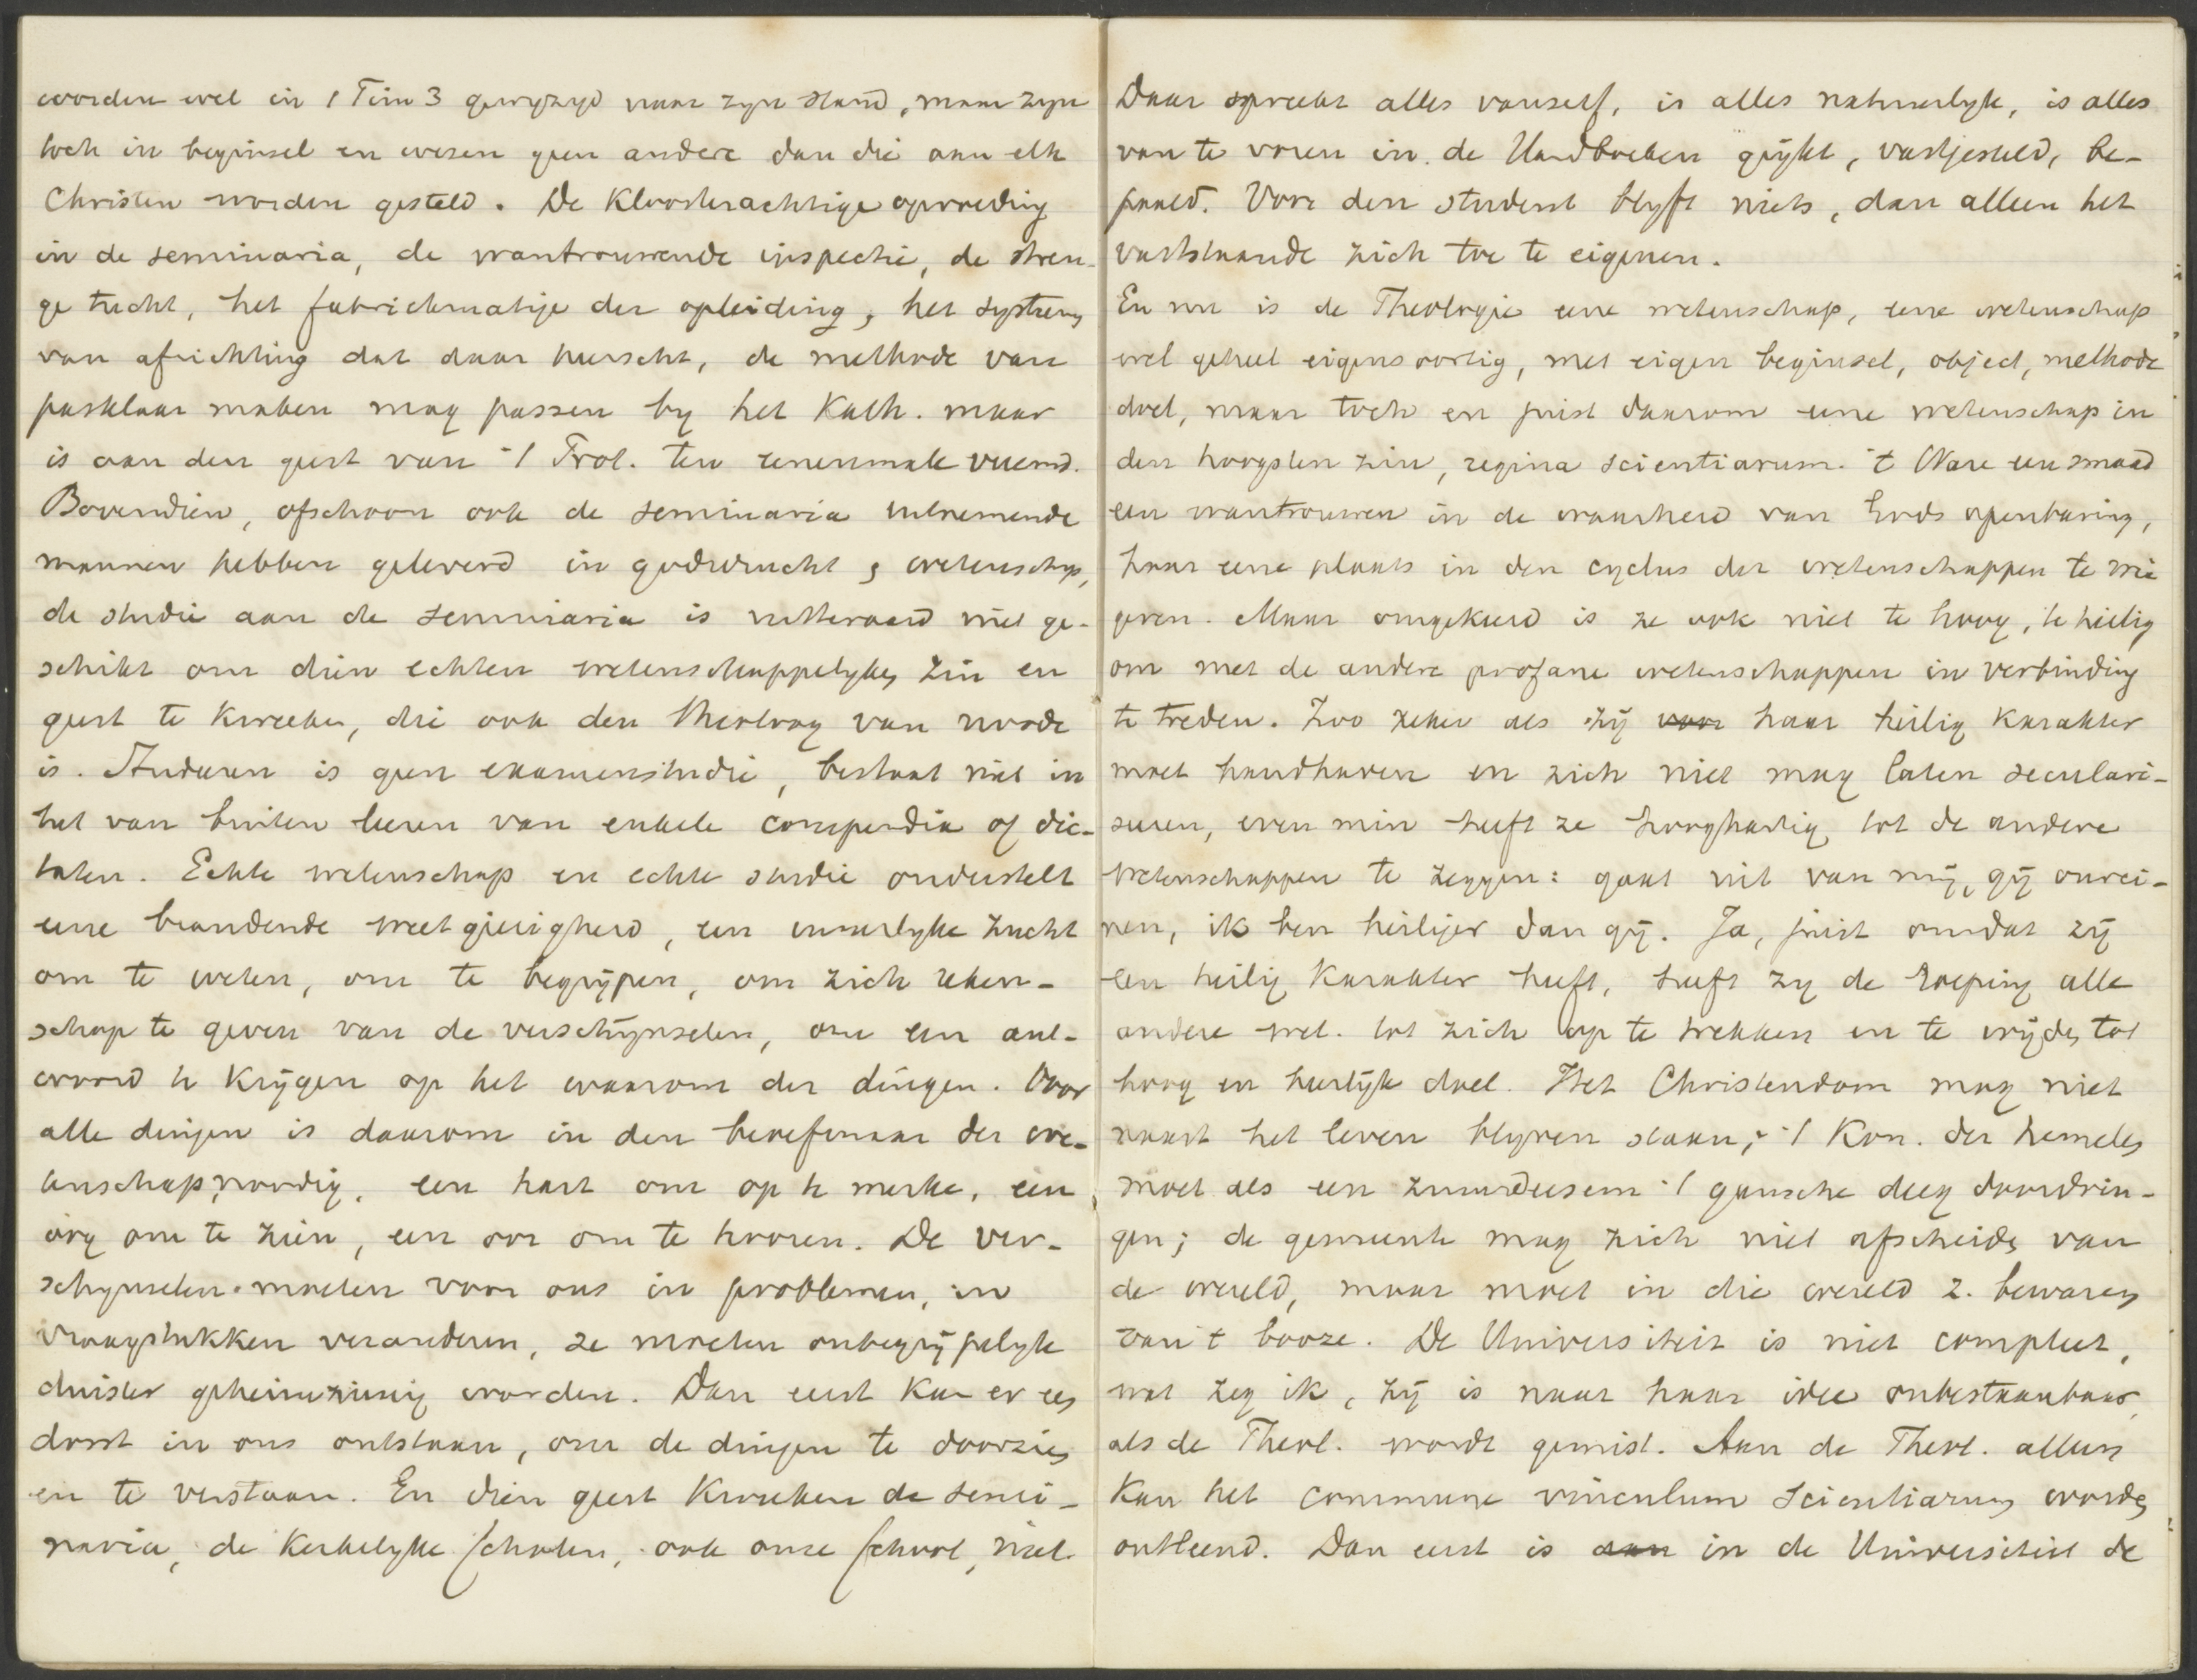 worden wel in 1 Tim 3 gewyzigd naar zyn stand, maar zyn
toch in beginsel en wezen geen andere dan die aan elk
Christen worden gesteld. De Kloosterachtige opvoeding
in de seminaria, de wantrouwende inspectie, de stren-
ge tucht, het fabriekmatige der opleiding, het systeem
van africhting dat daar heerscht, de methode van
pasklaar maken mag passen by het Kath. maar
is aan den geest van 't Prot. ten eenenmale vreemd.
Bovendien, ofschoon ook de seminaria uitnemende
mannen hebben geleverd in godsvrucht & wetenschap,
de studie aan de seminaria is uitteraard niet ge-
schikt om dien echten wetenschappelyken zin en
geest te kweeken, die ook den theoloog van noode
is. Studeren is geen examenstudie, bestaat niet in
het van buiten leeren van enkele compendia of dic-
taten. Echte wetenschap en echte studie onderstelt
eene brandende weetgierigheid, een innerlyke zucht
om te weten, om te begrijpen, om zich reken-
schap te geven van de verschijnselen, om een ant-
woord te krijgen op het waarom der dingen. Voor
alle dingen is daarom in den beoefenaar der we-
tenschap noodig, een hart om op te merken, een
oog om te zien, een oor om te hooren. De ver-
schynselen moeten voor ons in problemen, in
vraagstukken veranderen, ze moeten onbegrijpelyk
duister geheimzinnig worden. Dan eerst kan er een
dorst in ons ontstaan, om de dingen te doorzien
en te verstaan. En dien geest kweeken de semi-
naria, de kerkelyke scholen, ook onze school, niet.
Daar spreekt alles vanself, is alles natuurlyk, is alles
van te voren in de Handboeken geijkt, vastgesteld, be-
paald. Voor den student blyft niets, dan alleen het
vaststaande zich toe te eigenen.
En nu is de Theologie eene wetenschap, eene wetenschap
wel geheel eigensoortig, met eigen beginsel, object, methode
doel, maar toch en juist daarom eene wetenschap in
den hoogsten zin, regina scientiarum. 't Ware een smaad
een wantrouwen in de waarheid van Gods openbaring,
haar eene plaats in den cyclus der wetenschappen te wei
geren. Maar omgekeerd is ze ook niet te hoog, te heilig
om met de andere profane wetenschappen in verbinding
te treden. Zoo zeker als zij voor haar heilig karakter
moet handhaven en zich niet mag laten seculari-
seren, even min heeft ze hooghartig tot de andere
wetenschappen te zeggen: gaat uit van mij, gij onrei-
nen, ik ben heiliger dan gij. Ja, juist omdat zij
een heilig karakter heeft, heeft zy de roeping alle
andere wet. tot zich op te trekken en te wijden tot
hoog en heerlijk doel. Het Christendom mag niet
naast het leven blyven staan, 't Kon. der hemelen
moet als een zuurdeesem 't gansche deeg doordrin-
gen; de gemeente mag zich niet afscheiden van
de wereld, maar moet in die wereld z. bewaren
van 't booze. De Universiteit is niet compleet,
wat zeg ik, zij is naar haar idee onbestaanbaar,
als de Theol. wordt gemist. Aan de Theol. alleen
kan het commune vinculum scientiarum worden
ontleend. Dan eerst is aan in de Universiteit de